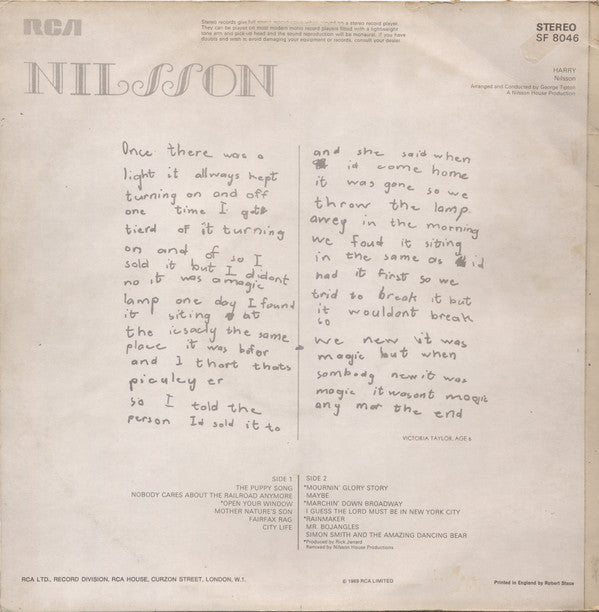 RCA
Stereo records give full
They can be played on most modern mono record players fitted with a lightweight
tone arm and pick-up head and the sound reproduction will be monaural. If you have
doubts and wish to avoid damaging your equipment or records, consult your dealer.
STEREO
SF 8046
NILSSON
HARRY
Nilsson
Arranged and Conducted by George Tipton
A Nilsson House Production
Once there was a
light it allways kept
turning on and off
one time I got
tierd of it turning
on and of so I
sold it but I didont
no it was a magic
lamp one day I found
it siting at
the icsacly the same
place it was befor
and I thort thats
piculey er
so I told the
person Id sold it to
and she said when
id come home
it was gone so we
throw the lamp
awey in the morning
we foud it siting
in the same as id
had it first so we
trid to break it but
it wouldont break
so
we new it was
magic but when
sombody new it was
magic it wasont magic
any mor the end
VICTORIA TAYLOR, AGE 6
SIDE 1
THE PUPPY SONG
NOBODY CARES ABOUT THE RAILROAD ANYMORE
*OPEN YOUR WINDOW
MOTHER NATURE'S SON
FAIRFAX RAG
CITY LIFE
SIDE 2
*MOURNIN' GLORY STORY
MAYBE
*MARCHIN' DOWN BROADWAY
I GUESS THE LORD MUST BE IN NEW YORK CITY
*RAINMAKER
MR. BOJANGLES
SIMON SMITH AND THE AMAZING DANCING BEAR
*Produced by Rick Jarrard
Remixed by Nilsson House Productions
RCA LTD., RECORD DIVISION, RCA HOUSE, CURZON STREET, LONDON, W.1.
© 1969 RCA LIMITED
Printed in England by Robert Stace